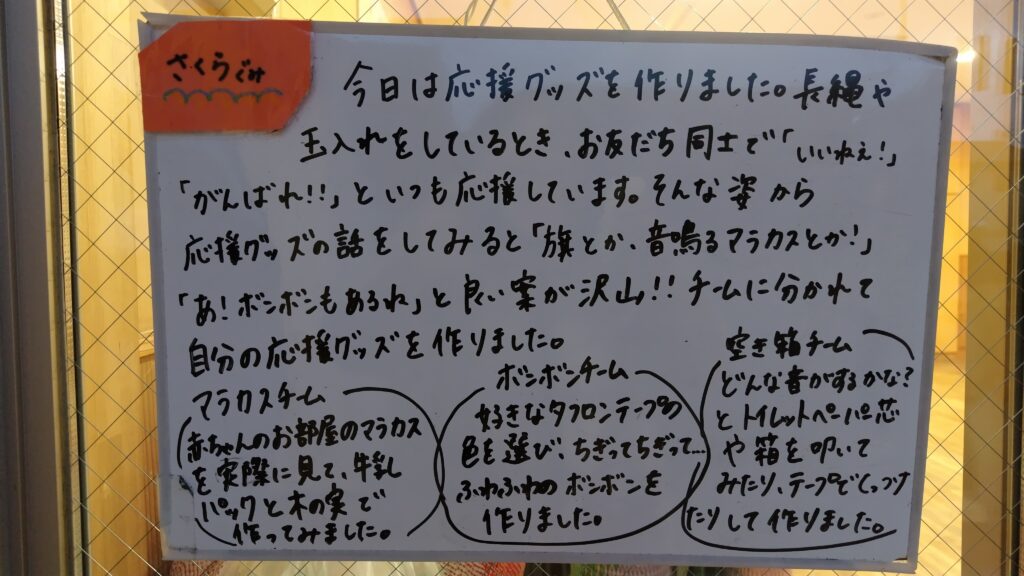 さくらぐみ
今日は応援グッズを作りました。長縄や
玉入れをしているとき、お友だち同士で「いいねぇ!」
「がんばれ!!」といつも応援しています。そんな姿から
応援グッズの話をしてみると「旗とか、音鳴るマラカスとか!」
「あ!ボンボンもあるね」と良い案が沢山!!チームに分かれて
自分の応援グッズを作りました。
マラカスチーム
赤ちゃんのお部屋のマラカス
を実際に見て、牛乳
パックと木の実で
作ってみました。
ボンボンチーム
好きなタフロンテープの
色を選び、ちぎってちぎって…
ふわふわのボンボンを
作りました。
空き箱チーム
どんな音がするかな?
とトイレットペーパー芯
や箱を叩いて
みたり、テープでくっつけ
たりして作りました。